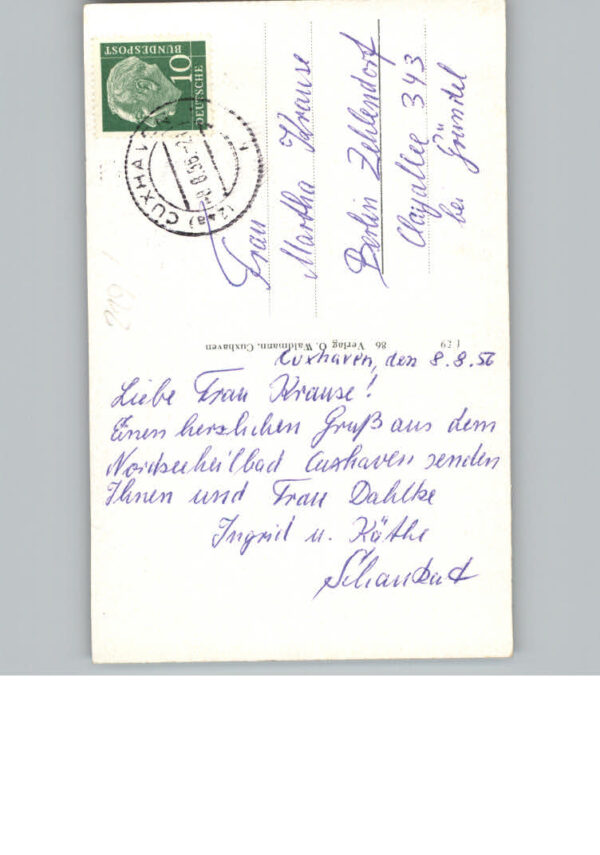 DEUTSCHE
BUNDESPOST
10
(24a) CUXHAVEN
Frau
Martha Krause
Berlin Zehlendorf
Clayallee 343
bei Gründel
86 Verlag O. Waldmann, Cuxhaven
Cuxhaven, den 8.8.56
Liebe Frau Krause!
Einen herzlichen Gruß aus dem
Nordseeheilbad Cuxhaven senden
Ihnen und Frau Dahlke
Ingrid u. Käthe